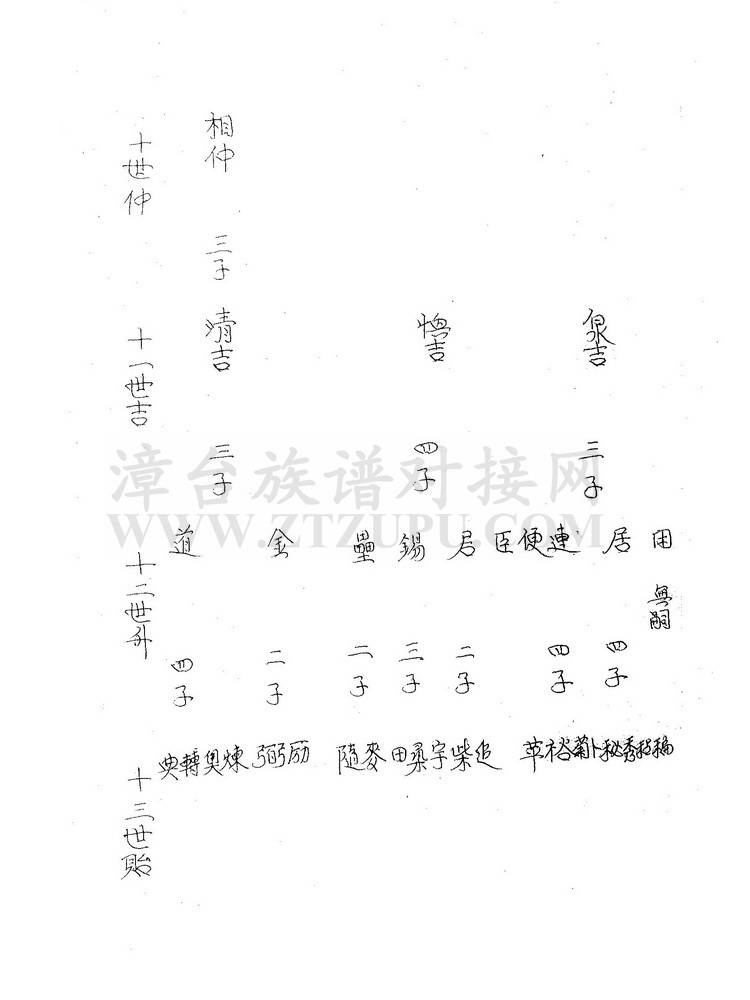 十世仲
相仲
三子
十一世吉
清吉
三子
憁吉
四子
泉吉
三子
漳台族谱对接网
WWW.ZTZUPU.COM
十二世升
道
金
壘
錫
君
臣
便
連
居
用
粵嗣
四子
二子
二子
三子
二子
四子
四子
十三世貽
典轉奧煉
弼励
隨麥
田桑宇
柴追
苹裕菊卜
秘秀程稿